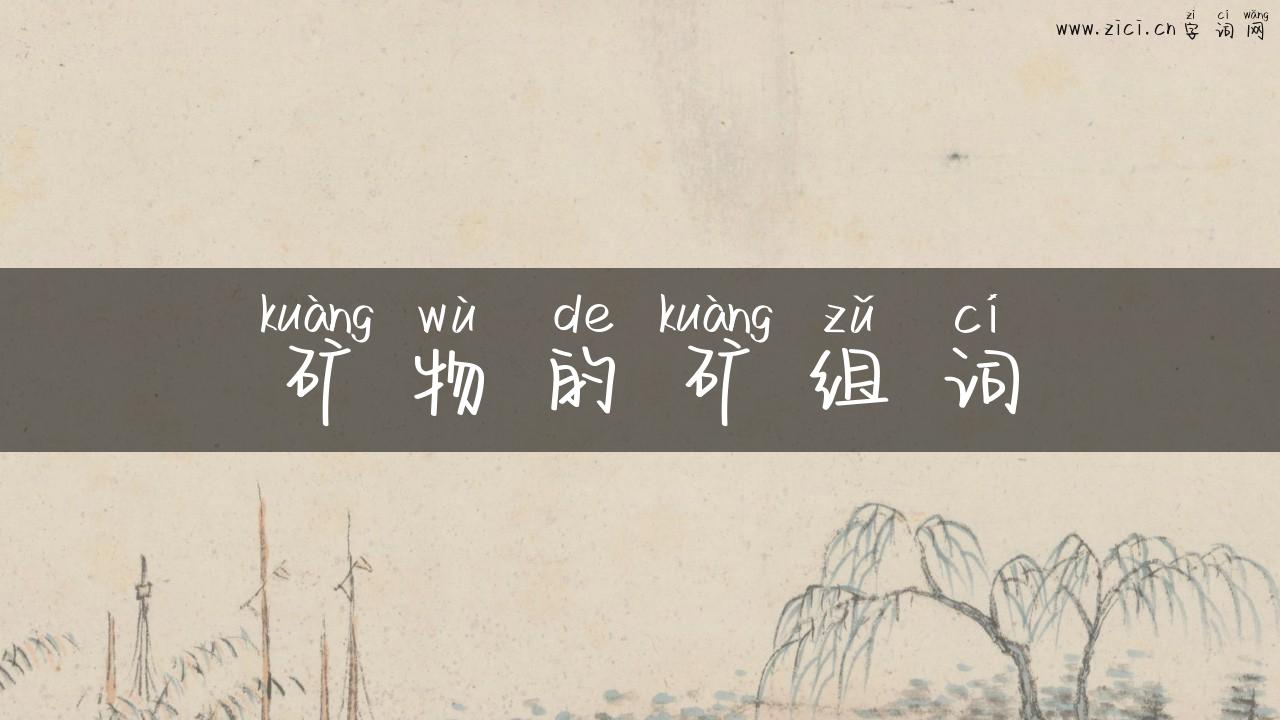 zì cí wǎng
www.zici.cn 字词网
kuàng wù de kuàng zǔ cí
矿物的矿组词